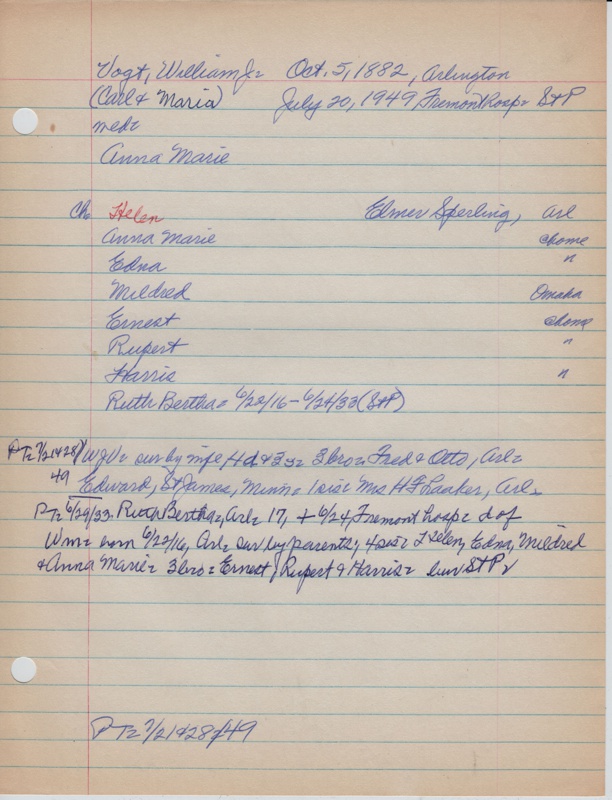 Vogt, William J= Oct. 5, 1882, Arlington
(Carl & Maria) July 20, 1949, Fremont hosp= StP
med=
Anna Marie
Ch. Helen Elmer Sperling, Arl
Anna Marie @home
Edna "
Mildred Omaha
Ernest @home
Rupert "
Harris "
Ruth Bertha= 6/22/16-6/24/33 (StP)
PT= 7/21&28/49 WJV= sur by wife, 4d & 3s= 3bro= Fred & Otto, Arl=
Edward, St James, Minn= 1sis= Mrs H F Laaker, Arl=
PT= 6/29/33= Ruth Bertha=, Arl= 17, + 6/24, Fremont hosp= d of
Wm= born 6/22/16, Arl= sur by parents; 4sis= Helen, Edna, Mildred
& Anna Marie= 3bro= Ernest, Rupert & Harris= bur StP=
PT= 7/21&28/49